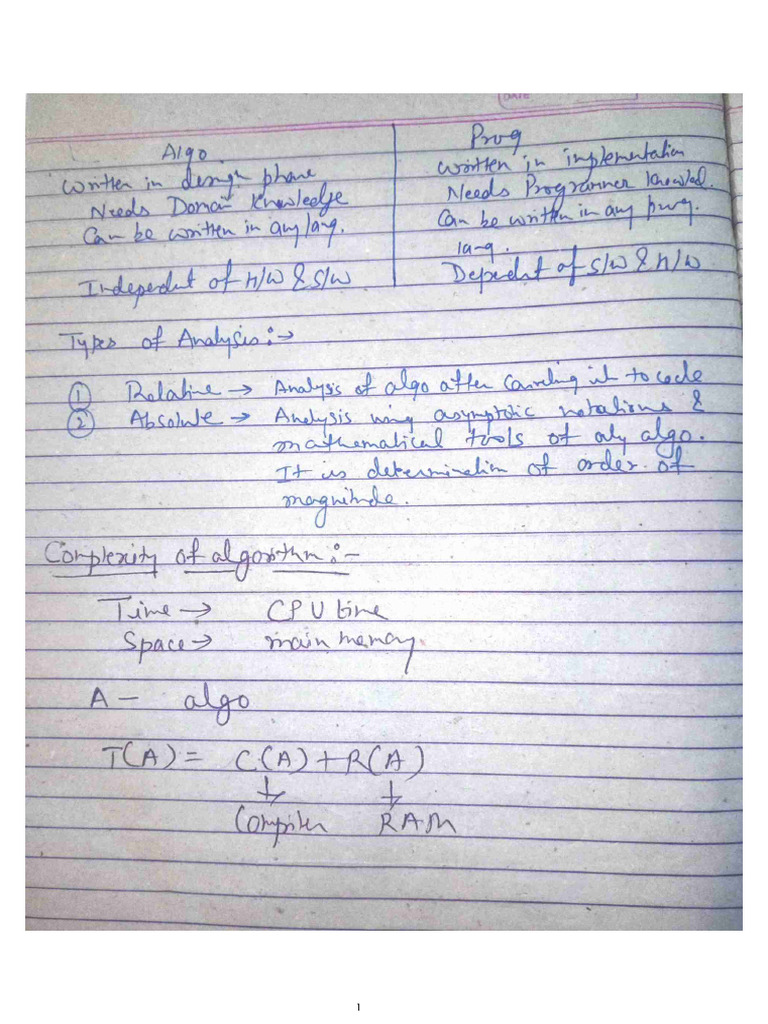 DATE
Algo
Prog
Written in design phase
Written in implementation
Needs Domain Knowledge
Needs Programmer Knowled.
Can be written in any lang.
Can be written in any prog.
lang.
Independent of H/W & S/W
Dependent of S/W & H/W
Types of Analysis:→
① Relative → Analysis of algo after converting it to code
② Absolute → Analysis using asymptotic notations &
mathematical tools of any algo.
It is determination of order of
magnitude.
Complexity of algorithm:-
Time → CPU time
Space → main memory.
A - algo
T(A) = C(A) + R(A)
↓ ↓
Compiler RAM
1